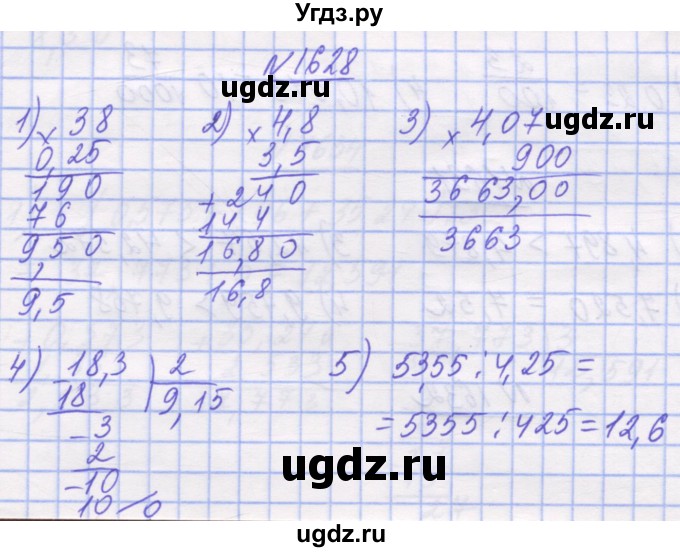 Угдз.ру
N 1628
ugdz.ru
ugdz.ru
1) × 38
0,25
190
76
9,50
9,5
2) × 4,8
3,5
+ 240
144
16,80
16,8
3) × 4,07
900
3663,00
3663
4) 18,3 2
18 9,15
-3
2
-10
10 / 0
5) 53,55 : 4,25 =
= 5355 : 425 = 12,6
ugdz.ru
ugdz.ru
ugdz.ru